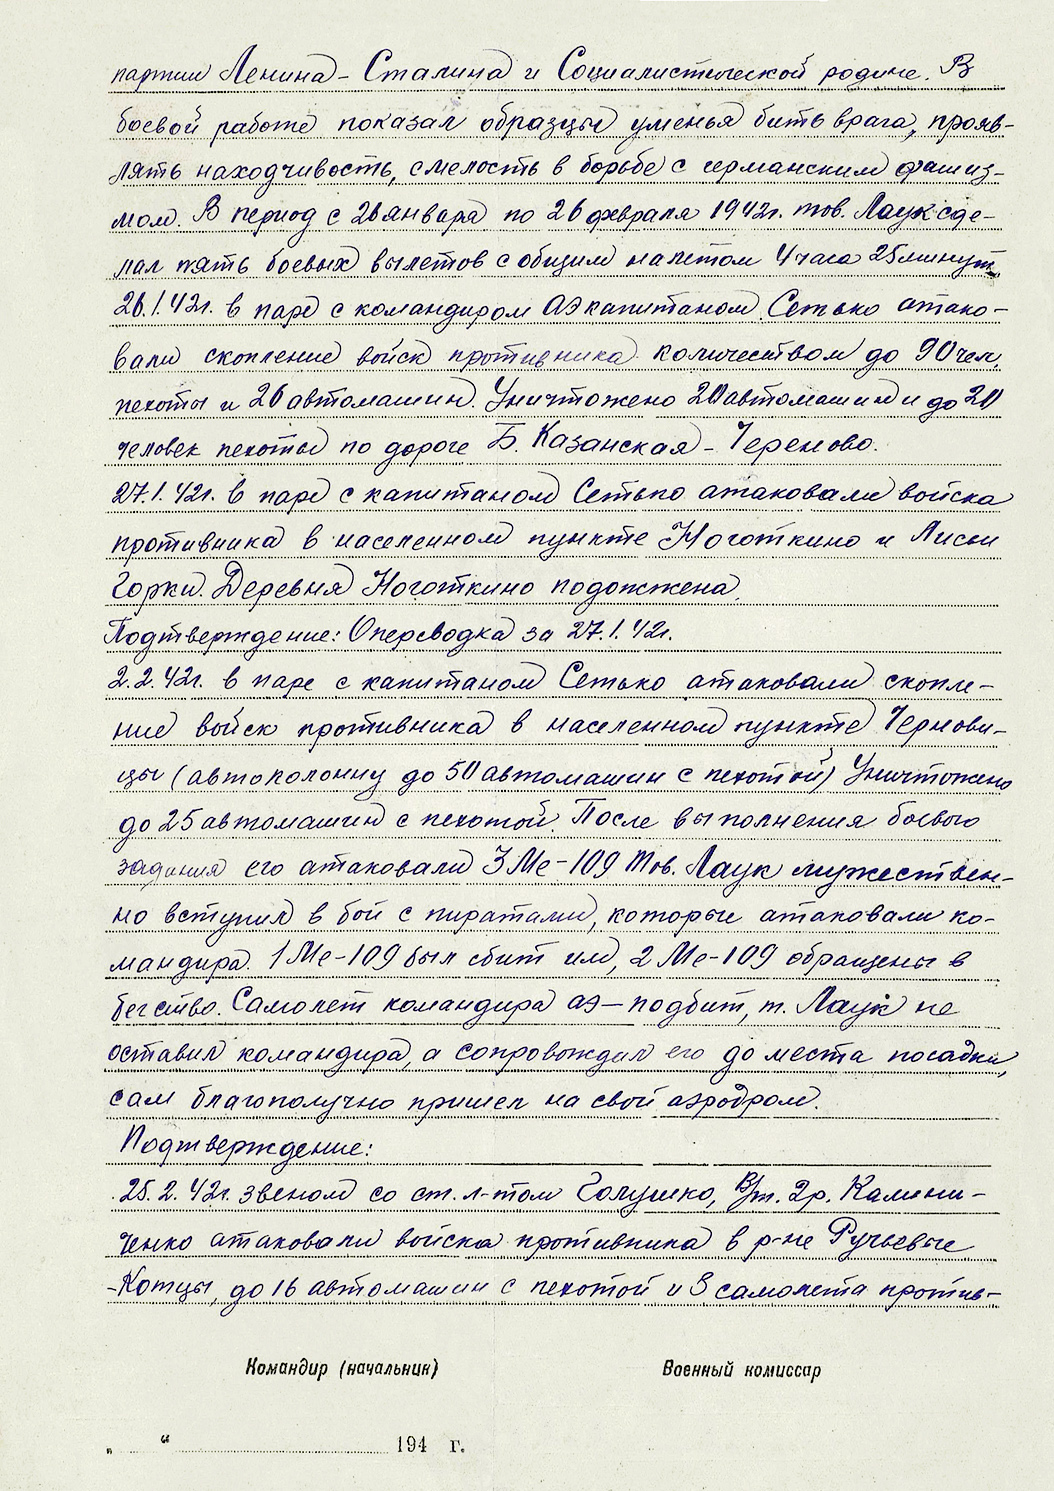 партии Ленина - Сталина и Социалистической родине. В
боевой работе показал образцы уменья бить врага, прояв-
лять находчивость, смелость в борьбе с германским фашиз-
мом. В период с 26 января по 26 февраля 1942г. тов. Лаук сде-
лал пять боевых вылетов с общим налетом 4 часа 25 минут
26.1.42г. в паре с командиром АЭ капитаном Сетько атако-
вали скопление войск противника количеством до 90 чел.
пехоты и 26 автомашин. Уничтожено 20 автомашин и до 20
человек пехоты по дороге Б. Казанская - Череново.
27.1.42г. в паре с капитаном Сетько атаковали войска
противника в населенном пункте Ноготкино и Лисьи
Горки. Деревня Ноготкино подожжена.
Подтверждение: Оперсводка за 27.1.42г.
2.2.42г. в паре с капитаном Сетько атаковали скопле-
ние войск противника в населенном пункте Чернови-
цы (автоколонну до 50 автомашин с пехотой) Уничтожено
до 25 автомашин с пехотой. После выполнения боевого
задания его атаковали 3 Ме-109 Тов. Лаук мужествен-
но вступил в бой с пиратами, которые атаковали ко-
мандира. 1 Ме-109 был сбит им, 2 Ме-109 обращены в
бегство. Самолет командира аэ - подбит, т. Лаук не
оставил командира, а сопровождал его до места посадки,
сам благополучно пришел на свой аэродром.
Подтверждение:
25.2.42г. звеном со ст. л-том Голушко, В/т. 2р. Калини-
ченко атаковали войска противника в р-не Ручьевые
-Котцы, до 16 автомашин с пехотой и 3 самолета против-
Командир (начальник) Военный комиссар
„ “ 194 г.